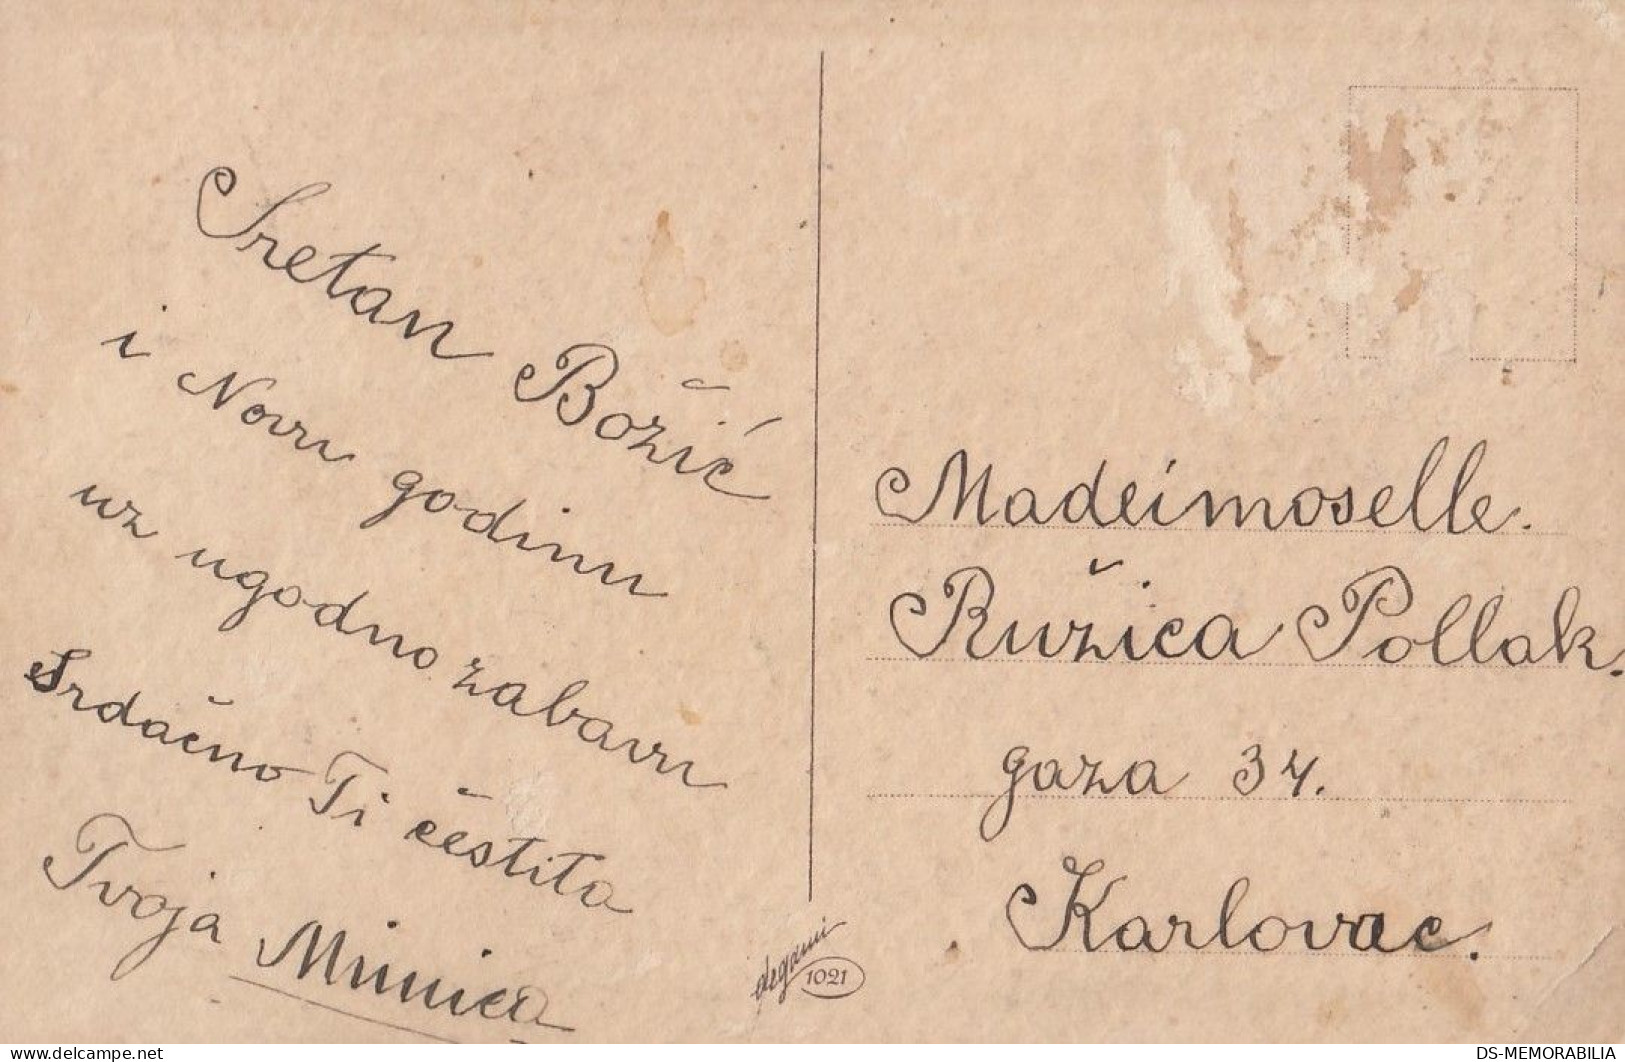 Sretan Božić
i Novu godinu
uz ugodnu zabavu
Srdačno Ti čestita
Tvoja Mimica
degami
1021
Madeimoselle.
Ružica Pollak.
gaza 34.
Karlovac.
DS-MEMORABILIA